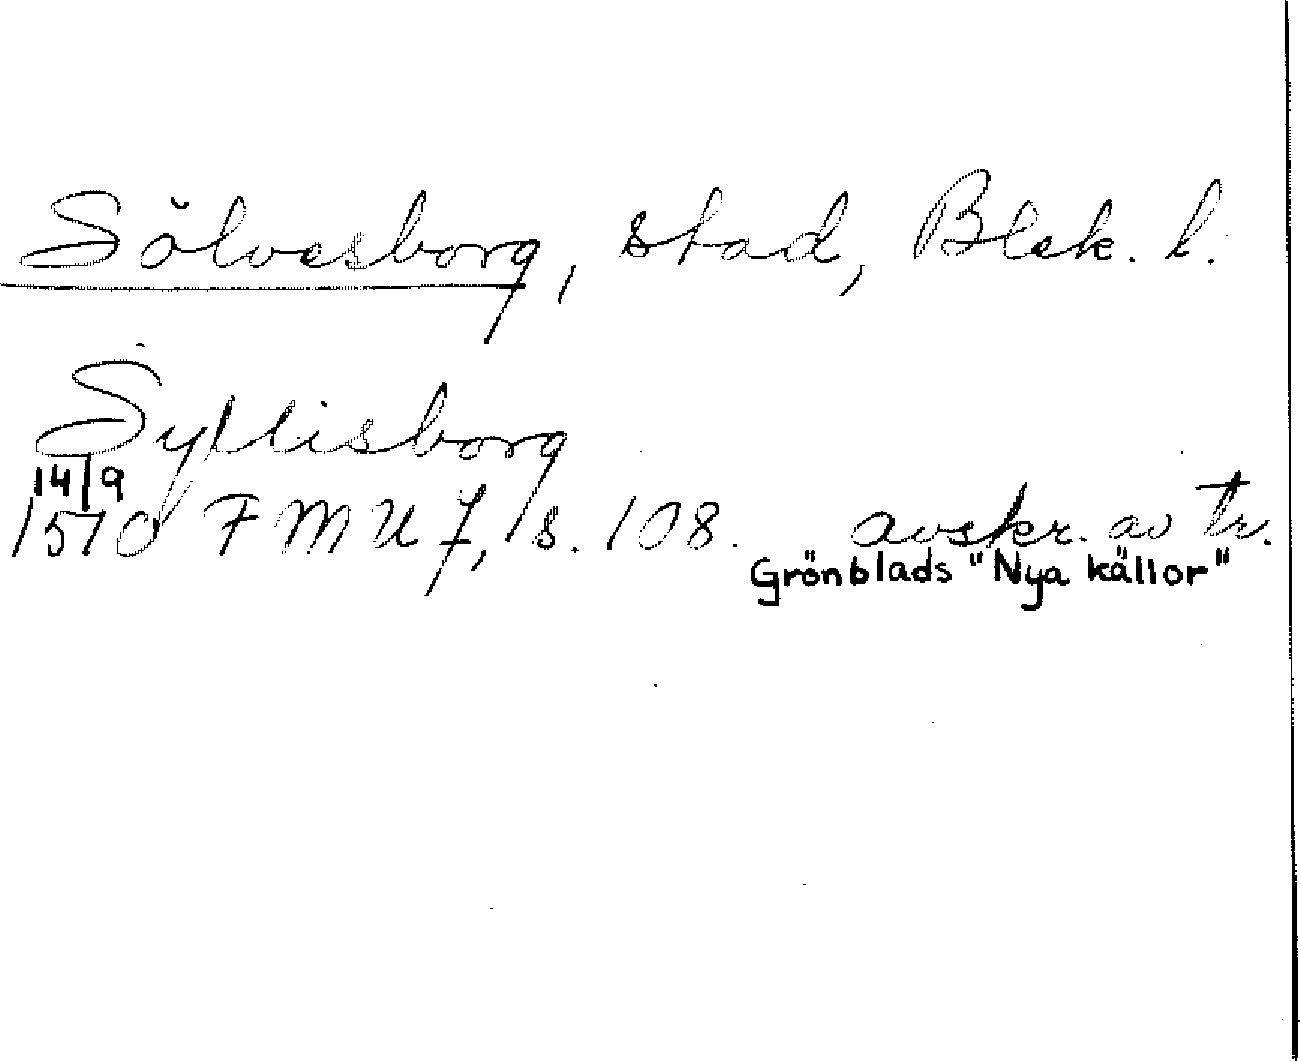 Sölvesborg, stad, Blek. l.
Syllisborg
14/9
1510 FMU 7, s. 108. avskr. av tr.
Grönblads "Nya källor"